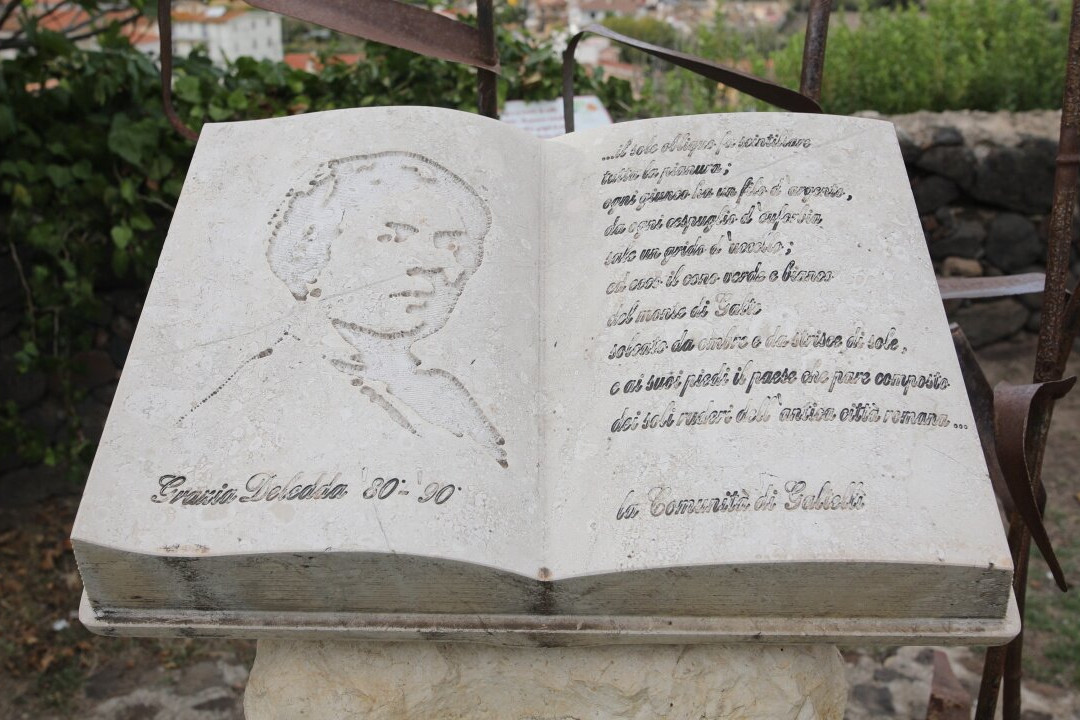 Grazia Deledda '80 - '90
...il sole obliquo fa scintillare
tutta la pianura;
ogni giunco ha un filo d'argento,
da ogni cespuglio d'euforvia
sale un grido d'uccello;
ed ecco il cono verde e bianco
del monte di Galte
solcato da ombre e da strisce di sole,
e ai suoi piedi il paese che pare composto
dei soli ruderi dell'antica città romana...
la Comunità di Galtelli